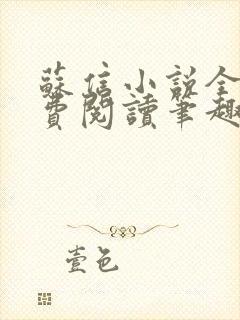 蘇信小説全
費閱讀筆趣
壹色